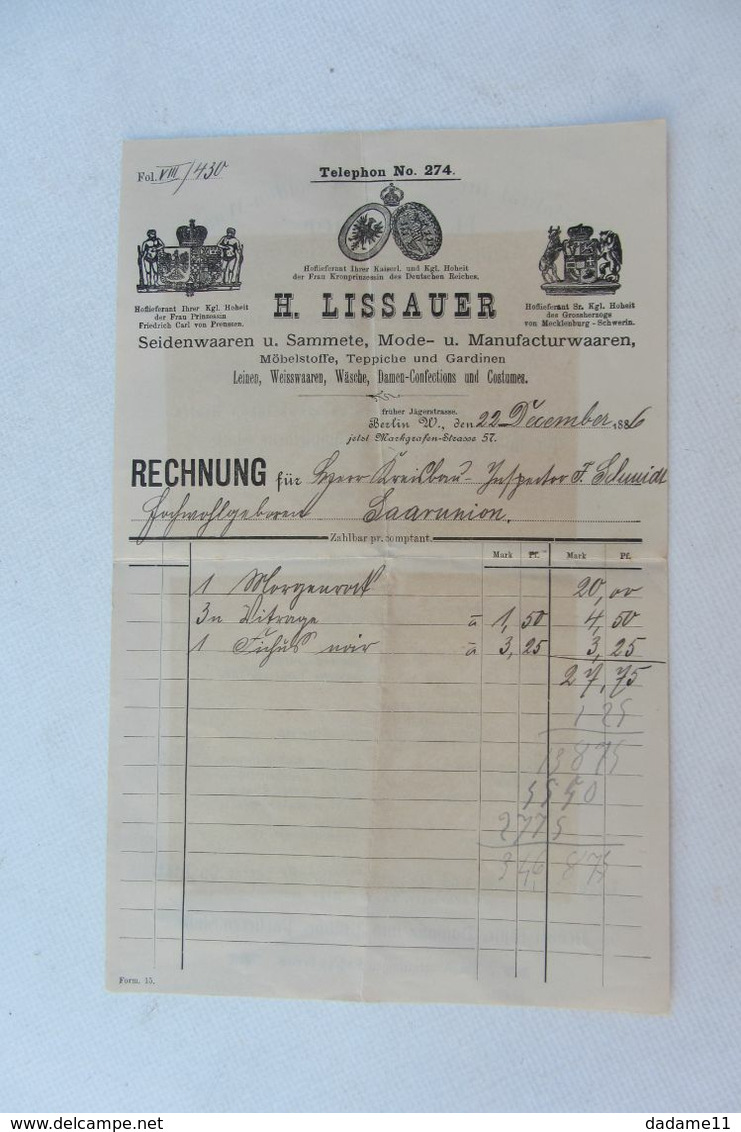 Fol. VIII/430
Telephon No. 274.
Hoflieferant Ihrer Kaiserl. und Kgl. Hoheit
der Frau Kronprinzessin des Deutschen Reiches.
Hoflieferant Ihrer Kgl. Hoheit
der Frau Prinzessin
Friedrich Carl von Preussen.
H. LISSAUER
Hoflieferant Sr. Kgl. Hoheit
des Grossherzogs
von Mecklenburg - Schwerin.
Seidenwaaren u. Sammete, Mode- u. Manufacturwaaren,
Möbelstoffe, Teppiche und Gardinen
Leinen, Weisswaaren, Wäsche, Damen-Confections und Costumes.
früher Jägerstrasse.
Berlin W., den 22 December 1886
jetzt Markgrafen-Strasse 57.
RECHNUNG für Herr Kreisbau-Inspector F. Schmidt
Hochwohlgeboren Saarunion.
Zahlbar pr. comptant.
Mark Pf. Mark Pf.
1 Morgenrock 20,00
3 m Vitrage a 1,50 4,50
1 Fichus noir a 3,25 3,25
27,75
125
13875
5550
2775
34,6875
Form. 15.
delcampe.net
dadame11